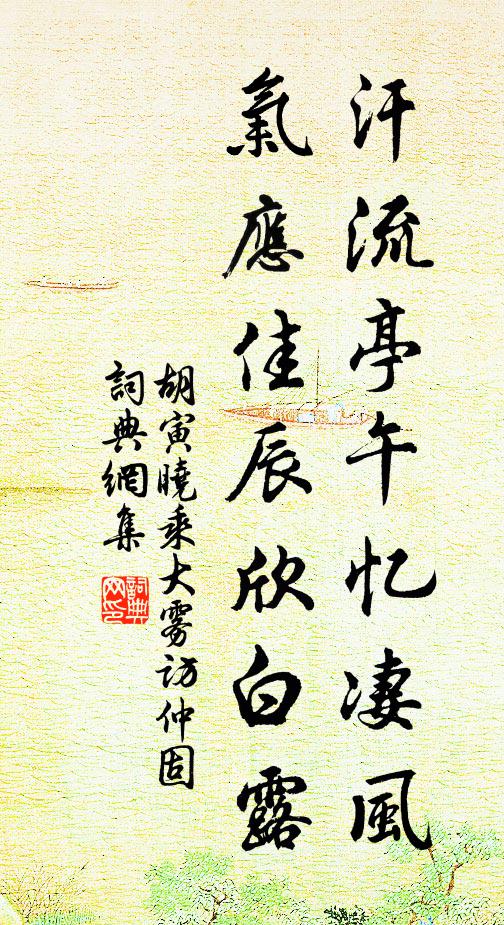 汗流亭午忆凄風
氣應佳辰欣白露
胡寅曉乘大雾访仲固
詞典網集
詞典网印